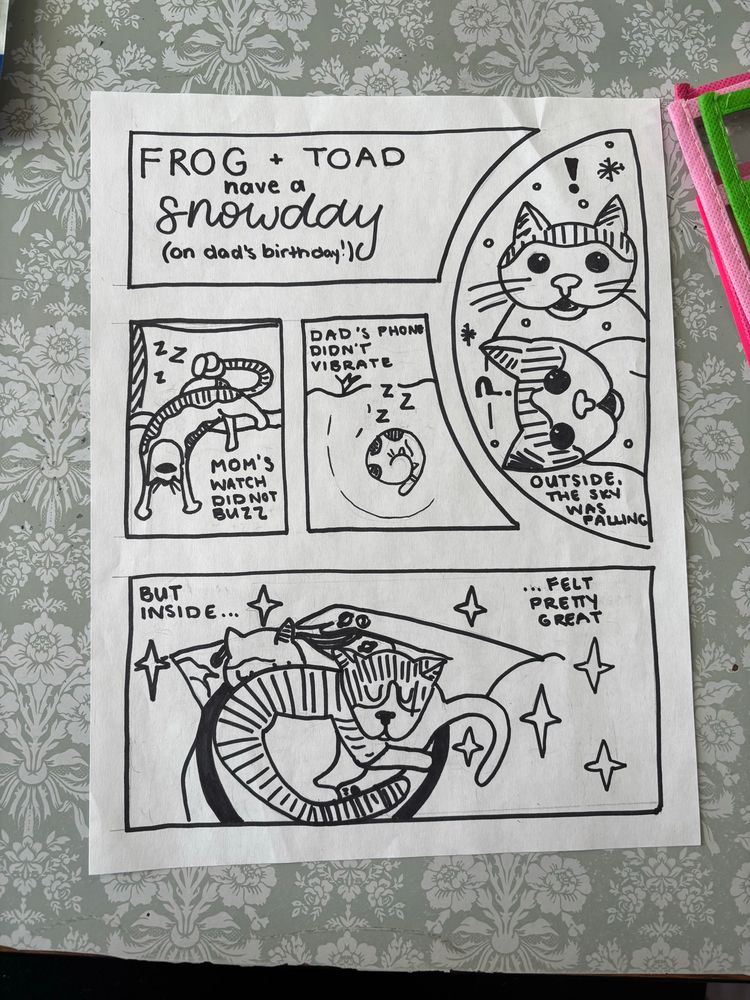 FROG + TOAD
have a
snowday
(on dad's birthday!)
!
*
Z Z
Z
MOM'S
WATCH
DID NOT
BUZZ
DAD'S PHONE
DIDN'T
VIBRATE
Z
Z Z
*
—?
OUTSIDE,
THE SKY
WAS
FALLING
BUT
INSIDE...
...FELT
PRETTY
GREAT